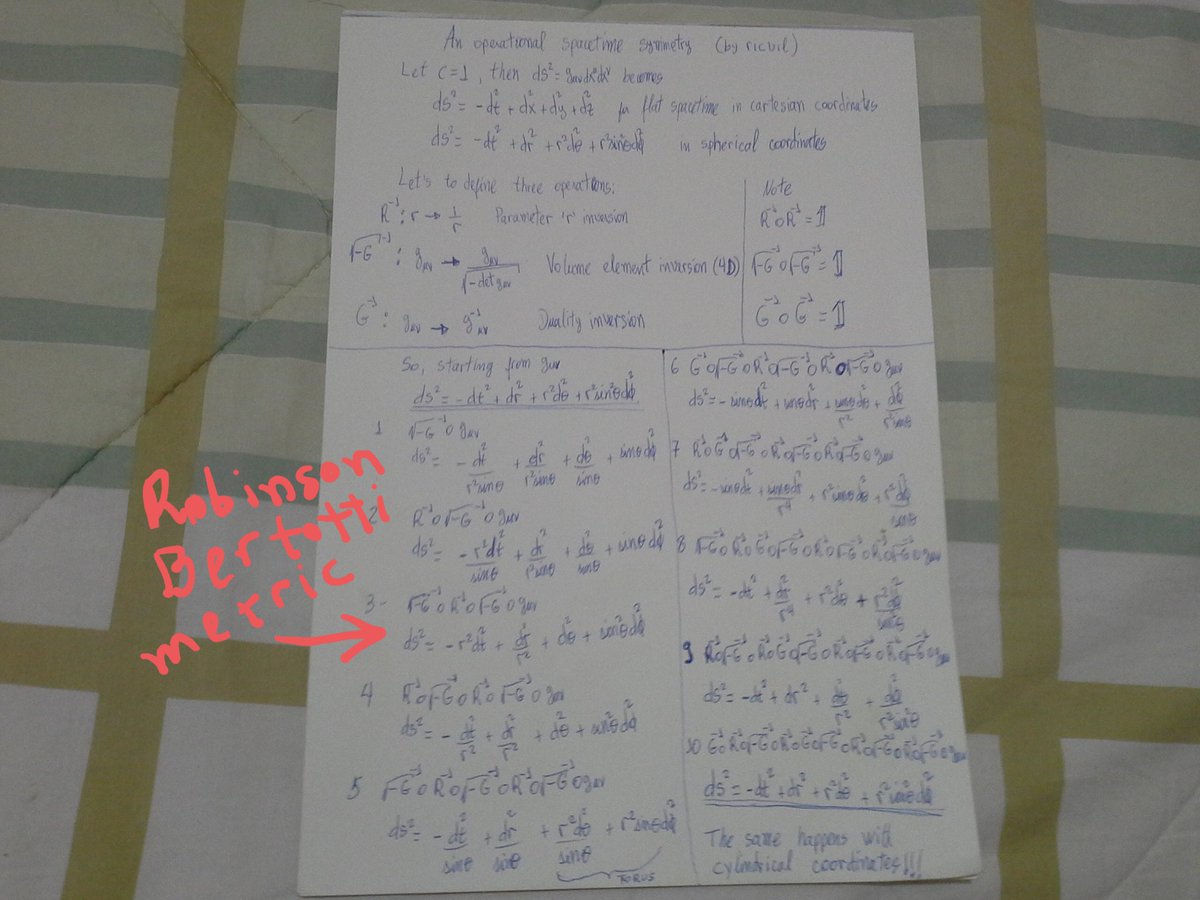 An operational spacetime symmetry (by ricvil)
Let c=1, then ds² = gμν dx^μ dx^ν becomes
ds² = -dt² + dx² + dy² + dz² for flat spacetime in cartesian coordinates
ds² = -dt² + dr² + r²dθ² + r²sin²θdϕ² in spherical coordinates
Let's to define three operations:
R⁻¹ : r → 1/r Parameter 'r' inversion
√-G⁻¹ : gμν → gμν/√-det gμν Volume element inversion (4D)
G⁻¹ : gμν → g⁻¹μν Duality inversion
Note
R⁻¹ o R⁻¹ = 𝟙
√-G⁻¹ o √-G⁻¹ = 𝟙
G⁻¹ o G⁻¹ = 𝟙
So, starting from gμν
ds² = -dt² + dr² + r²dθ² + r²sin²θdϕ²
1 √-G⁻¹ o gμν
ds² = -dt²/r²sinθ + dr²/r²sinθ + dθ²/sinθ + sinθdϕ²
2 R⁻¹ o √-G⁻¹ o gμν
ds² = -r²dt²/sinθ + dr²/r²sinθ + dθ²/sinθ + sinθdϕ²
3- √-G⁻¹ o R⁻¹ o √-G⁻¹ o gμν
ds² = -r²dt² + dr²/r² + dθ² + sin²θdϕ²
4 R⁻¹ o √-G⁻¹ o R⁻¹ o √-G⁻¹ o gμν
ds² = -dt²/r² + dr²/r² + dθ² + sin²θdϕ²
5 √-G⁻¹ o R⁻¹ o √-G⁻¹ o R⁻¹ o √-G⁻¹ o gμν
ds² = -dt²/sinθ + dr²/sinθ + r²dθ²/sinθ + r²sinθdϕ²
TORUS
6 G⁻¹ o √-G⁻¹ o R⁻¹ o √-G⁻¹ o R⁻¹ o √-G⁻¹ o gμν
ds² = -sinθdt² + sinθdr² + sinθdθ²/r² + dϕ²/r²sinθ
7 R⁻¹ o G⁻¹ o √-G⁻¹ o R⁻¹ o √-G⁻¹ o R⁻¹ o √-G⁻¹ o gμν
ds² = -sinθdt² + sinθdr²/r⁴ + r²sinθdθ² + r²dϕ²/sinθ
8 √-G⁻¹ o R⁻¹ o G⁻¹ o √-G⁻¹ o R⁻¹ o √-G⁻¹ o R⁻¹ o √-G⁻¹ o gμν
ds² = -dt² + dr²/r⁴ + r²dθ² + r²dϕ²/sin²θ
9 R⁻¹ o √-G⁻¹ o R⁻¹ o G⁻¹ o √-G⁻¹ o R⁻¹ o √-G⁻¹ o R⁻¹ o √-G⁻¹ o gμν
ds² = -dt² + dr² + dθ²/r² + dϕ²/r²sin²θ
10 G⁻¹ o R⁻¹ o √-G⁻¹ o R⁻¹ o G⁻¹ o √-G⁻¹ o R⁻¹ o √-G⁻¹ o R⁻¹ o √-G⁻¹ o gμν
ds² = -dt² + dr² + r²dθ² + r²sin²θdϕ²
The same happens with
cylindrical coordinates!!!
Robinson
Bertotti
metric